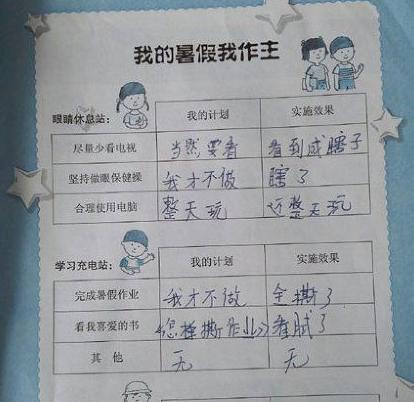 我的暑假我作主
眼睛休息站： 我的计划 实施效果
尽量少看电视 当然要看 看到成瞎子
坚持做眼保健操 我才不做 瞎了
合理使用电脑 整天玩 还整天玩
学习充电站： 我的计划 实施效果
完成暑假作业 我才不做 全撕了
看我喜爱的书 《怎样撕作业》 看腻了
其他 无 无